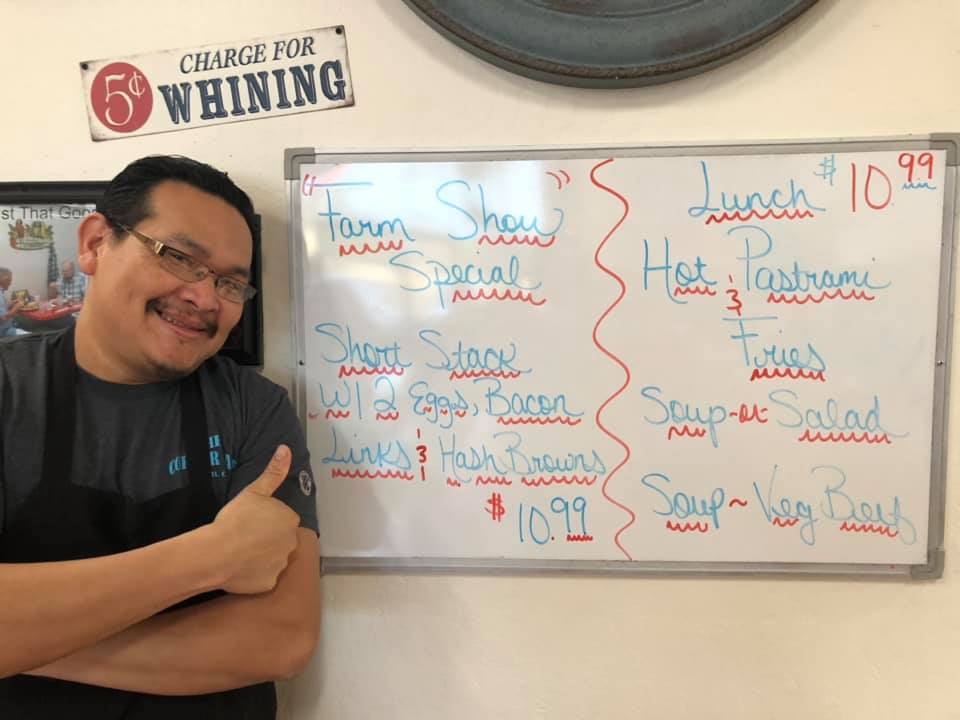 5¢ CHARGE FOR
WHINING
st That Goo
"Farm Show"
Special
Short Stack
W/ 2 Eggs, Bacon
Links & Hash Browns
$10.99
Lunch $10.99
Hot Pastrami
&
Fries
Soup-or-Salad
Soup~Veg Beef